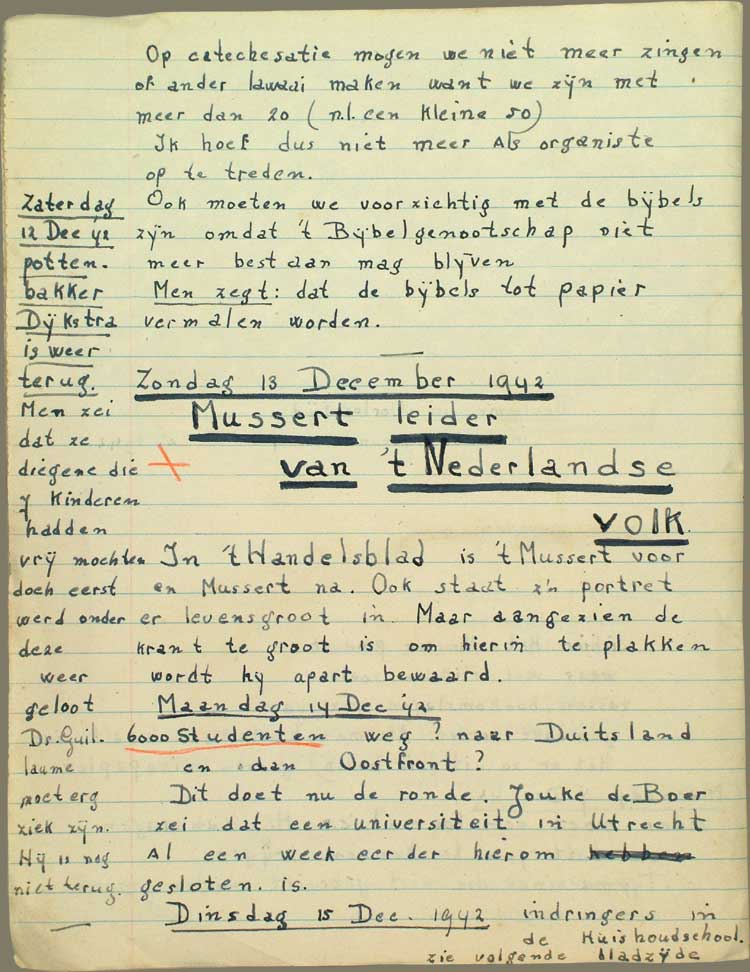 Op catechesatie mogen we niet meer zingen
of ander lawaai maken want we zijn met
meer dan 20 (n.l. een kleine 50)
Ik hoef dus niet meer Als organiste
op te treden.
Ook moeten we voorzichtig met de bijbels
zijn omdat 't Bijbelgenootschap niet
meer bestaan mag blijven
Men zegt: dat de bijbels tot papier
vermalen worden.
Zaterdag
12 Dec '42
potten.
bakker
Dijkstra
is weer
terug.
Men zei
dat ze
diegene die
7 Kinderen
hadden
vrij mochten
doch eerst
werd onder
deze
weer
geloot
Ds. Guil.
laume
moet erg
ziek zijn.
Hij is nog
niet terug.
Zondag 13 December 1942
Mussert leider
van 't Nederlandse
volk.
In 't Handelsblad is 't Mussert voor
en Mussert na. Ook staat z'n portret
er levensgroot in. Maar aangezien de
krant te groot is om hierin te plakken
wordt hij apart bewaard.
Maandag 14 Dec '42
6000 Studenten weg? naar Duitsland
en dan Oostfront?
Dit doet nu de ronde. Jouke de Boer
zei dat een universiteit in Utrecht
Al een week eerder hierom hebben
gesloten. is.
Dinsdag 15 Dec. 1942 indringers in
de Huishoudschool.
zie volgende bladzijde